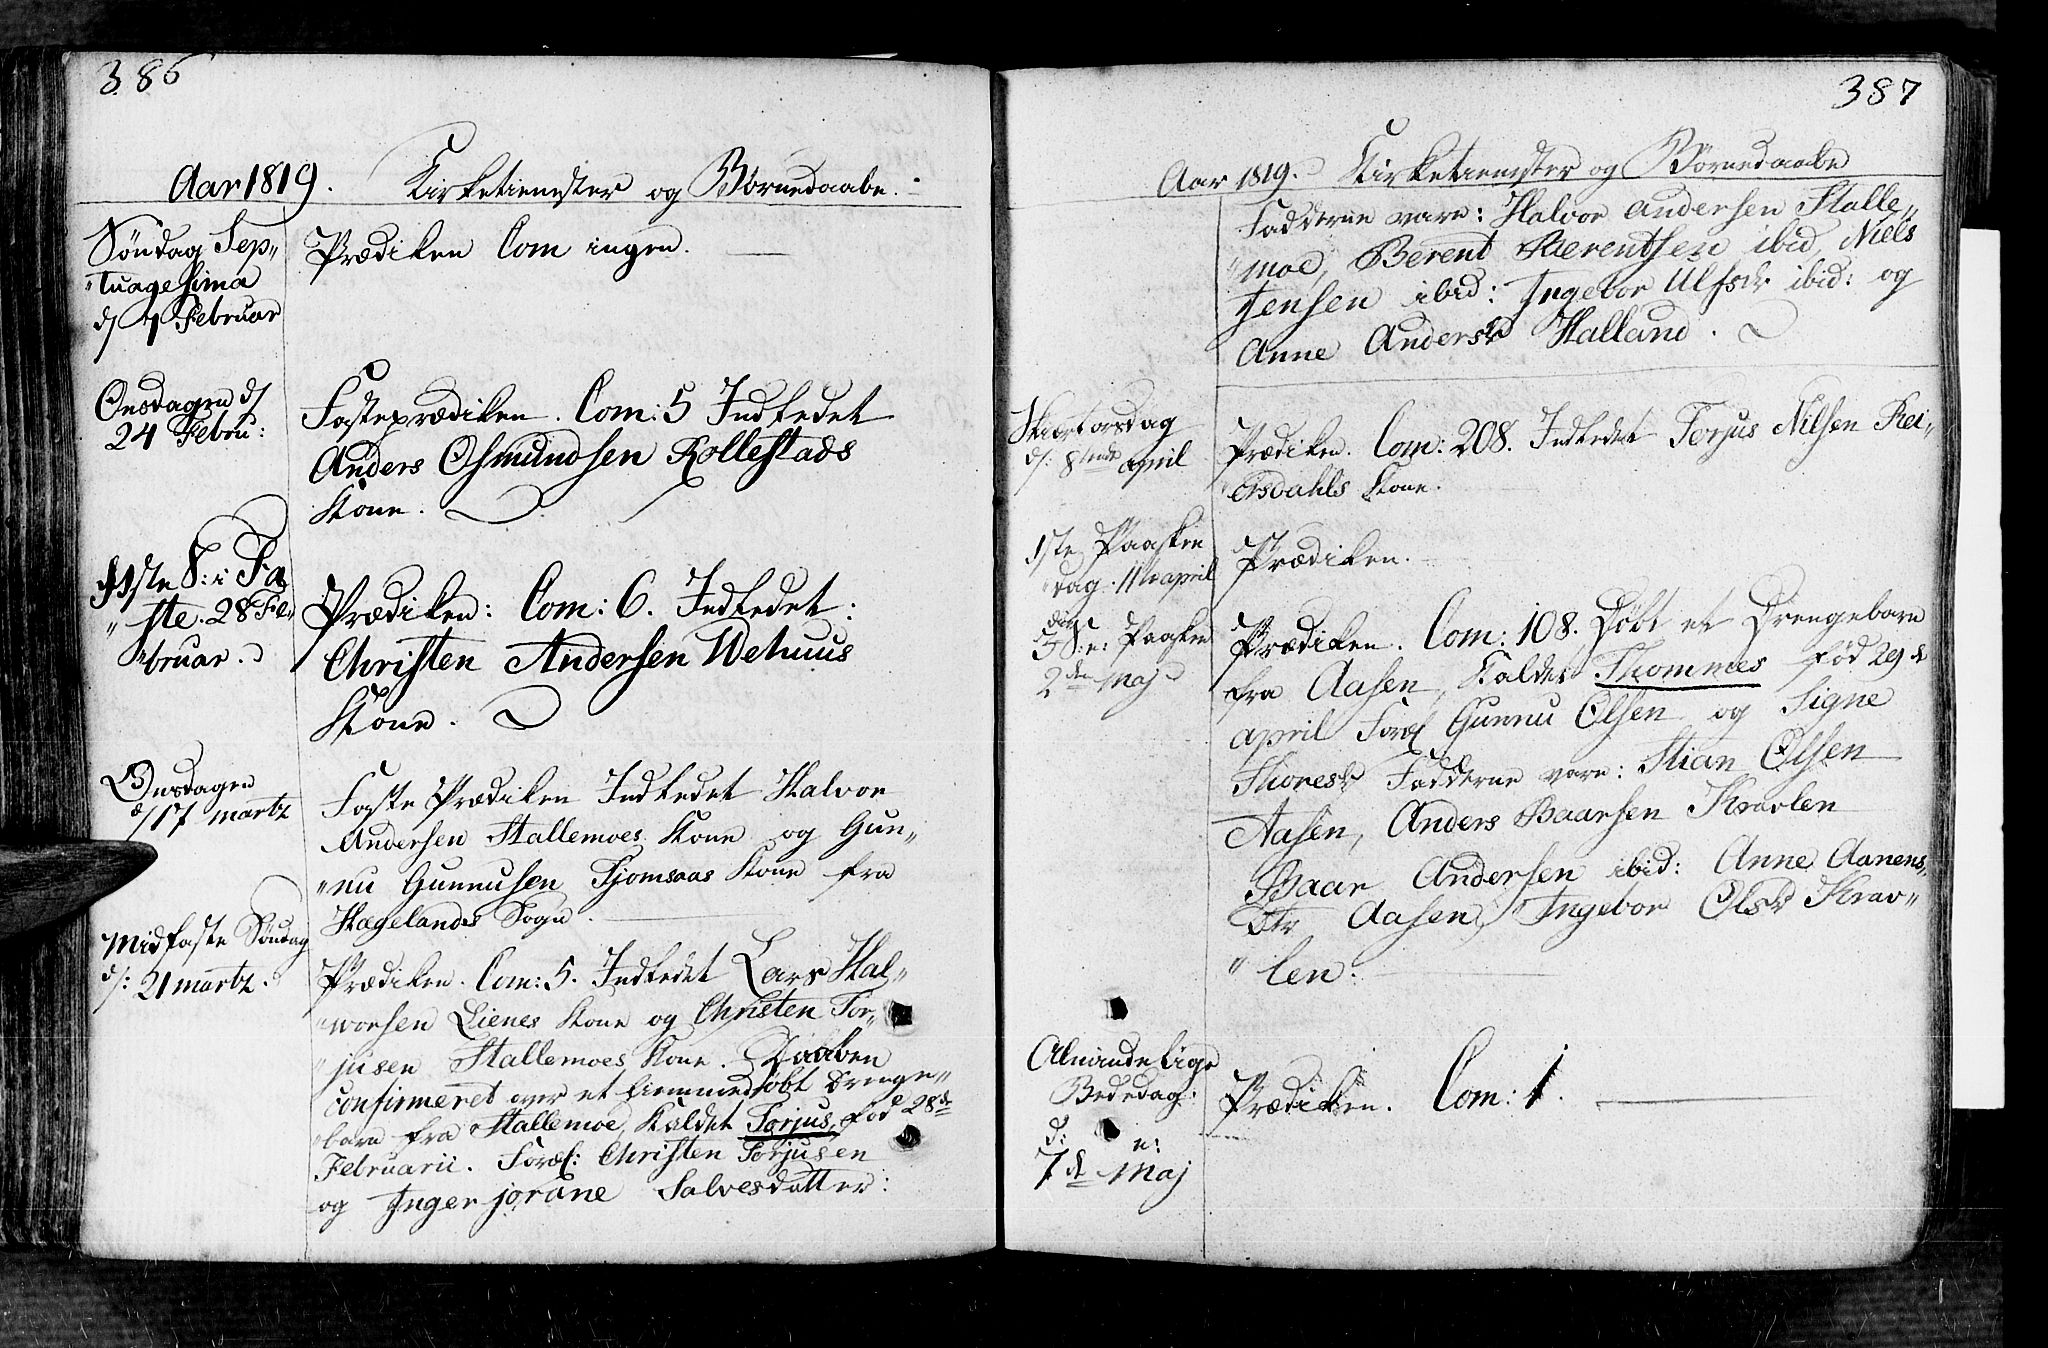 386
Aar 1819. Kirketienester og Börnedaabe.
Söndag Sep„
„tuagesima
d 7 Februar
Prædiken Com ingen.
Onsdagen d
24 Febru:
Fasteprædiken. Com: 5 Indledet
Anders Osmundsen Rollestads
Kone.
1ste S: i Fa
„ste. 28 Fe„
„bruar.
Prædiken: Com: 6. Indledet:
Christen Andersen Wehuus
Kone.
Onsdagen
d 17 martz
Faste Prædiken Indledet Halvor
Andersen Stallemoes Kone og Gun„
„nu Gunnusen Tjomsaas Kone fra
Hægelands Sogn.
Midfaste Söndag
d: 21 martz.
Prædiken. Com: 5. Indledet Lars Hal„
„worsen Lienes Kone og Christen Tor„
„jusen Stallemoes Kone. Daaben
confirmeret over et hiemmedöbt Drenge„
„barn fra Stallemoe, Kaldet Torjus, föd 28de
Februarii. Foræl: Christen Torjusen
og Inger jorane Salvesdatter:
387
Aar 1819. Kirketienester og Börnedaabe
Fadderne vare: Halvor Andersen Stalle„
„moe, Berent Berentsen ibid, Niels
Jensen ibid: Ingebor Ulfsdr ibid: og
Anne Andersdr Halland.
Skiertorsdag
d: 8tende april
Prædiken. Com: 208. Indledet Torjus Nilsen Rei„
„ersdahls Kone.
1ste Paaske
„dag. 11te april
Prædiken.
3die S: e: Paaske
2den Maj
Prædiken. Com: 108. Döbt et Drengebarn
fra Aasen, Kaldet Thommes föd 29d
april Foræl Gunnu Olsen og Signe
Thoresdr Fadderne vare: Stian Olsen
Aasen, Anders Baarsen Kravlen
Baar Andersen ibid: Anne Aanens„
Dtr Aasen, Ingebor Olsdr Krav„
„len:
Almindelige
Bededag:
d: e:
7d Maj
Prædiken. Com: 1.